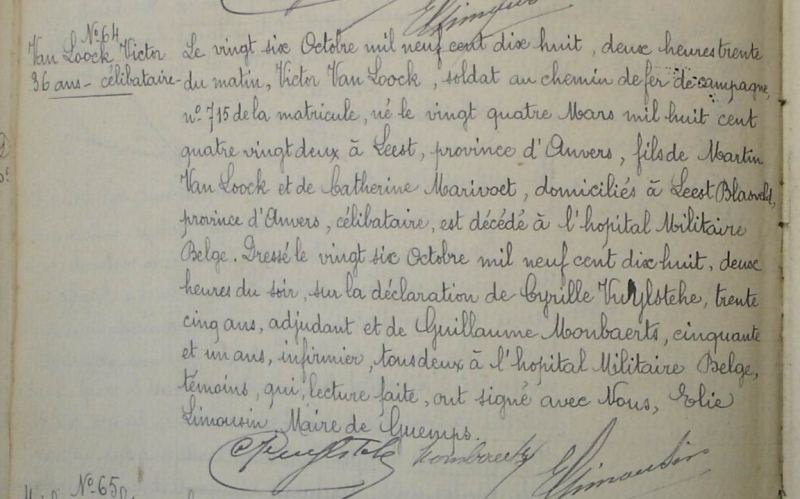 Limousin
N° 64
Van Loock Victor
36 ans - célibataire -
Le vingt six Octobre mil neuf cent dix huit, deux heures trente
du matin, Victor Van Loock, soldat au chemin de fer de campagne,
n° 715 de la matricule, né le vingt quatre Mars mil huit cent
quatre vingt deux à Leest, province d'Anvers, fils de Martin
Van Loock et de Catherine Marivoet, domiciliés à Leest Blaasveld,
province d'Anvers, célibataire, est décédé à l'hopital Militaire
Belge. Dressé le vingt six Octobre mil neuf cent dix huit, deux
heures du soir, sur la déclaration de Cyrille Vuylsteke, trente
cinq ans, adjudant et de Guillaume Monbaerts, cinquante
et un ans, infirmier, tous deux à l'hopital Militaire Belge,
témoins, qui, lecture faite, ont signé avec Nous, Elie
Limousin, Maire de Guemps.
CVuylsteke Monbaerts ELimousin
N° 65